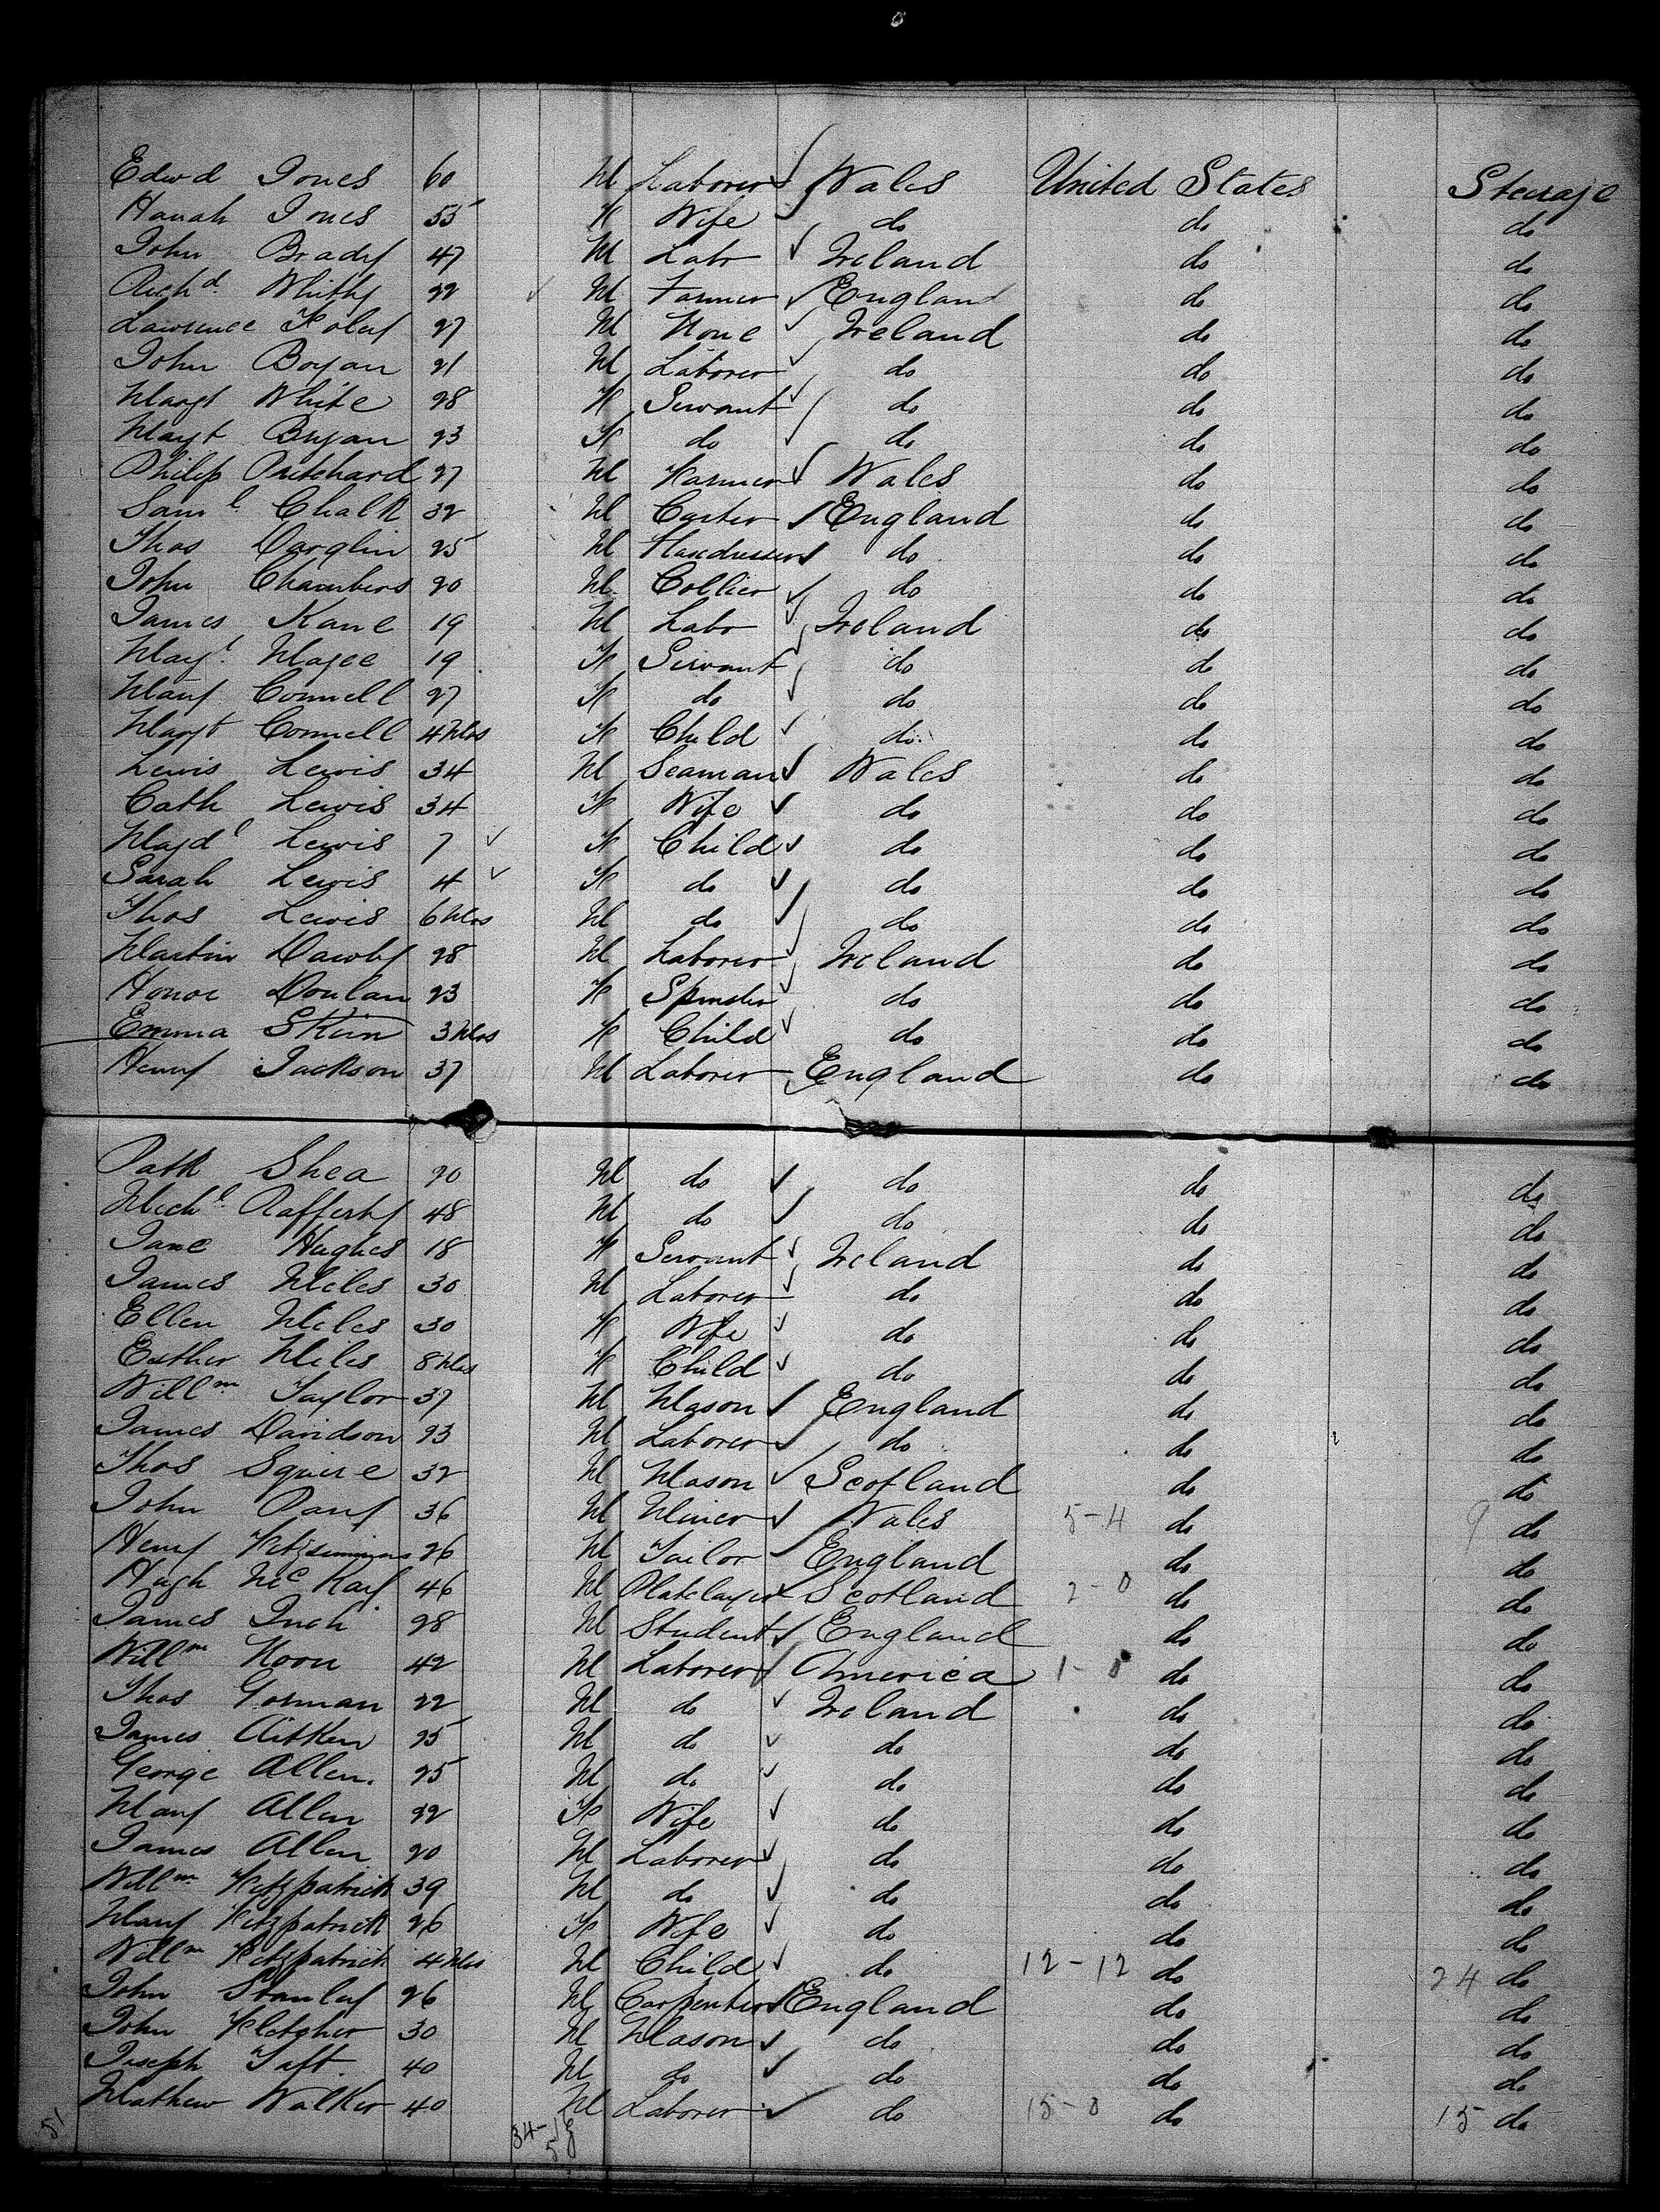 Edwd Jones 60 M Laborer Wales United States Steerage
Hanah Jones 55 F Wife do do do
John Brady 47 M Labr Ireland do do
Richd. Whitby 22 M Farmer England do do
Lawrence Foley 27 M None Ireland do do
John Bryan 21 M Laborer do do do
Margt White 28 F Servant do do do
Margt Bryan 23 F do do do do
Philip Pritchard 27 M Farmer Wales do do
Saml Chalk 32 M Carter England do do
Thos Carglin 25 M Flaxdresser do do do
John Chambers 20 M Collier do do do
James Kane 19 M Labr Ireland do do
Margt. Magee 19 F Servant do do do
Mary Connell 27 F do do do do
Margt Connell 4 Mos F Child do do do
Lewis Lewis 34 M Seaman Wales do do
Cath Lewis 34 F Wife do do do
Magdl Lewis 7 F Child do do do
Sarah Lewis 4 F do do do do
Thos Lewis 6 Mos M do do do do
Martin Darby 28 M Laborer Ireland do do
Honor Doulan 23 F Spinster do do do
Emma 3 Mos F Child do do do
Henry Jackson 37 M Laborer England do do
Patk Shea 20 M do do do do
Michl. Rafferty 48 M do do do do
Jane Hughes 18 F Servant Ireland do do
James Miles 30 M Laborer do do do
Ellen Miles 30 F Wife do do do
Esther Miles 8 Mos F Child do do do
Willm Taylor 37 M Mason England do do
James Davidson 23 M Laborer do do do
Thos Squire 32 M Mason Scotland do do
John Parry 36 M Miner Wales 5-4 do 9 do
Henry Fitzsimmons 26 M Tailor England do do
Hugh McKay 46 M Platelayer Scotland 2-0 do do
James Inch 28 M Student England do do
Willm Moon 42 M Laborer America 1-0 do do
Thos Gorman 22 M do Ireland do do
James Aitken 25 M do do do do
George Allen. 25 M do do do do
Mary Allen 22 F Wife do do do
James Allen 20 M Laborer do do do
Willm Fitzpatrick 39 M do do do do
Mary Fitzpatrick 26 F Wife do do do
Willm Fitzpatrick 4 Mos M Child do 12-12 do 24 do
John Stanley 26 M Carpenter England do do
John Fletcher 30 M Mason do do do
Joseph Taft 40 M do do do do
Mathew Walker 40 M Laborer do 15-0 do 15 do
51 34-16